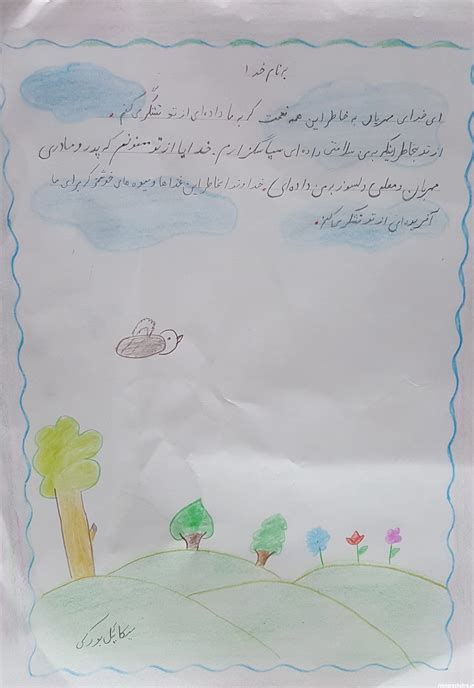 بنام خدا
ای خدای مهربان به خاطر این همه نعمت که به ما داده‌ای از تو تشکر می‌کنم.
از تو بخاطر اینکه به من سلامتی داده‌ای سپاسگزارم. خدایا از تو ممنونم که پدر و مادری
مهربان و معلمی دلسوز به من داده‌ای. خداوندا بخاطر این غذاها و میوه های خوشمزه که برای ما
آفریده‌ای از تو تشکر می‌کنم.
میکائیل بورکی